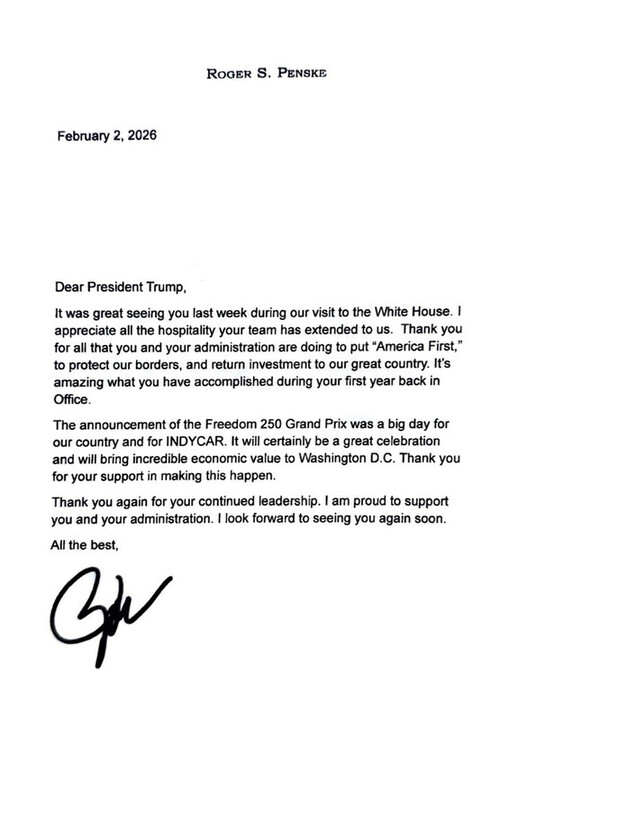 Roger S. Penske
February 2, 2026
Dear President Trump,
It was great seeing you last week during our visit to the White House. I
appreciate all the hospitality your team has extended to us.  Thank you
for all that you and your administration are doing to put “America First,”
to protect our borders, and return investment to our great country. It’s
amazing what you have accomplished during your first year back in
Office.
The announcement of the Freedom 250 Grand Prix was a big day for
our country and for INDYCAR. It will certainly be a great celebration
and will bring incredible economic value to Washington D.C. Thank you
for your support in making this happen.
Thank you again for your continued leadership. I am proud to support
you and your administration. I look forward to seeing you again soon.
All the best,